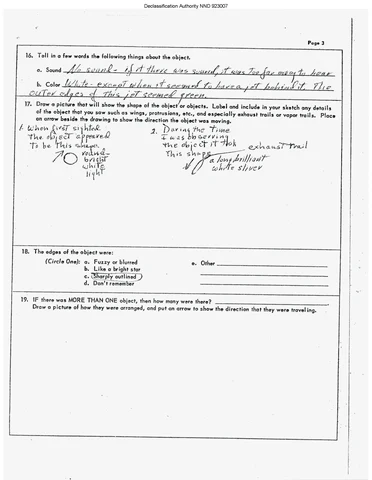 Declassification Authority NND 923007
Page 3
16. Tell in a few words the following things about the object.
a. Sound No sound - if it there was sound, it was too far away to hear
b. Color White - except when it seemed to have a jet behind it. The
outer edges of this jet seemed green.
17. Draw a picture that will show the shape of the object or objects. Label and include in your sketch any details
of the object that you saw such as wings, protrusions, etc., and especially exhaust trails or vapor trails. Place
an arrow beside the drawing to show the direction the object was moving.
1. When first sighted
the object appeared
to be this shape
round-
bright
white
light
2. During the time
I was observing
the object it took
this shape
exhaust trail
a long brilliant
white sliver
18. The edges of the object were:
(Circle One): a. Fuzzy or blurred
b. Like a bright star
c. Sharply outlined
d. Don't remember
e. Other
19. IF there was MORE THAN ONE object, then how many were there?
Draw a picture of how they were arranged, and put an arrow to show the direction that they were traveling.